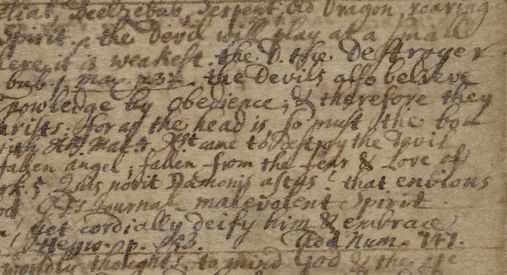 Beelzebub, Serpent, Old Dragon, roaring
Spirit, the Devil will play at a small
it is weakest. the D. the Destroyer
bub. p. 232. the Devils also beleive
nowledge by obedience, & therefore they
hrists. For as the head is so must the bo
Mat. 4. Xst came to destroy the devil
fallen angel, fallen from the fear & Love of
5. Quis novit Dæmonis astus. that envious
Journal. malevolent Spirit
yet cordially deify him & embrace
p. God Num. 141.
worldly thoughts, to mind God & the